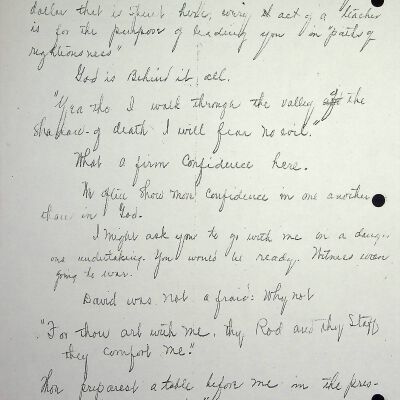 dollar that is spent here, every act of a teacher
is for the purpose of leading you in "paths of
righteousness"
God is Behind it all.
"Yea tho I walk through the valley of the
Shadow of death I will fear no evil."
What a firm Confidence here.
We often show more Confidence in one another
than in God.
I might ask you to go with me in a danger-
ous undertaking. You would be ready. Witness men
going to war.
David was not afraid: Why not
"For thou art with me, thy Rod and thy Staff
they comfort me."
Thou preparest a table before me in the pres-